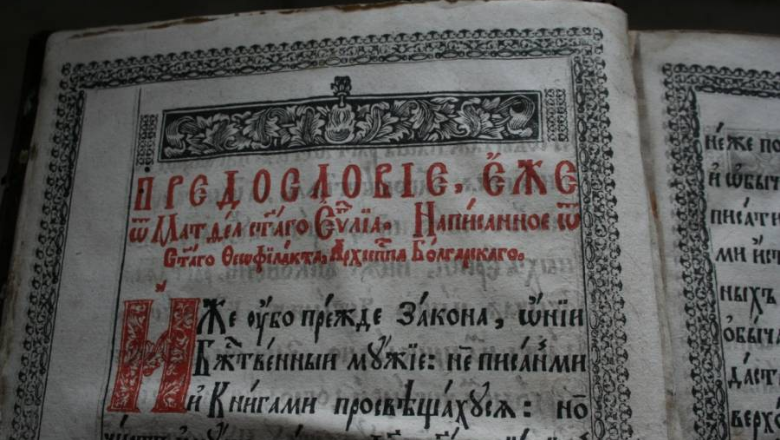 ПРЕДОСЛОВІЕ, Е́ЖЕ
ѿ Матѳеа ст҃а́го Еѵⷢ҇лїа. Написанное ѿ
Ст҃а́го Ѳеофѵлакта, Архїепⷭ҇па Болгарскаго.
И҆́же ᲂу҆́бо пре́жде Зако́на, ѡ҆нїи
Бжⷭ҇твенныи мꙋ́жїе: не писа́нми
и҆ Кни́гами просвѣща́хꙋсѧ: но
не́же по
и҆ ѡ҆бы́ч
писа́ти
ми и҆́ст
ныхъ
ѻ҆бы́ча
да́ст
верхъ